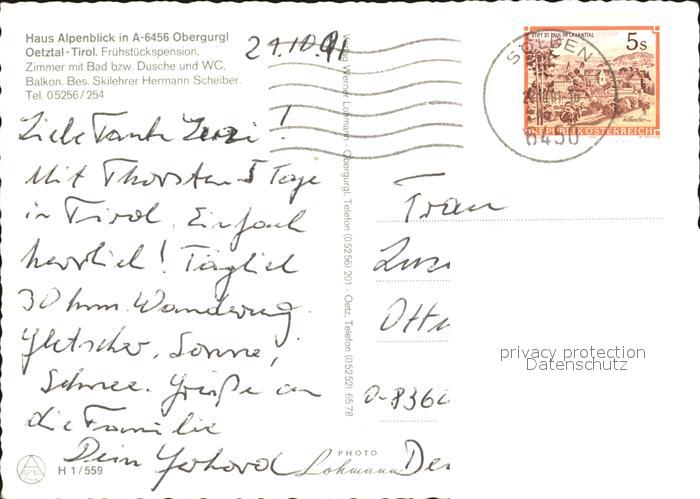 Haus Alpenblick in A-6456 Obergurgl
Oetztal-Tirol. Frühstückspension,
Zimmer mit Bad bzw. Dusche und WC,
Balkon. Bes. Skilehrer Hermann Scheiber.
Tel. 05256/254
21.10.91
Liebe Tante Zenzi!
Mit Thorsten 5 Tage
in Tirol. Einfach
herrlich! Täglich
30 km Wanderung.
Gletscher, Sonne,
Schnee. Grüße an
die Familie
Dein Gerhard
H 1/559
PHOTO
Lohmann
Verlag Werner Lohmann · Obergurgl, Telefon (05256) 201 · Oetz, Telefon (05252) 6578
STIFT ST. PAUL IM LAVANTTAL
5s
REPUBLIK ÖSTERREICH
SÖLDEN
6450
Frau
D-836
privacy protection
Datenschutz